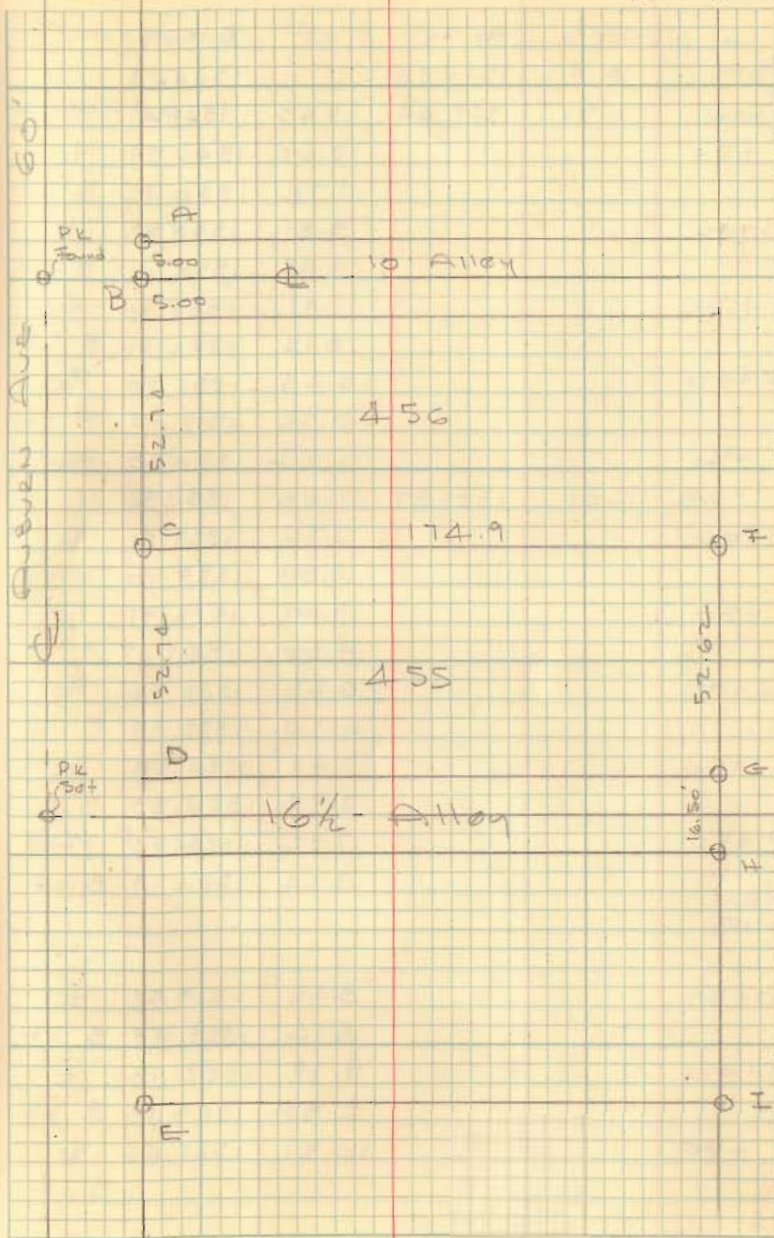 AUBURN AVE 60'
PK
found
A
5.00
10' Alley
B
5.00
52.74
456
C
174.9
F
52.74
455
52.62
PK
Set
D
G
16½' Alley
16.50'
H
E
I